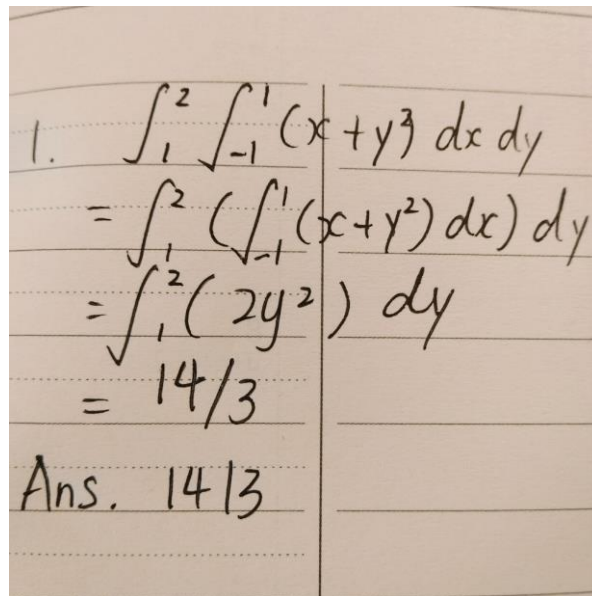 1. ∫₁² ∫₋₁¹ (x + y²) dx dy
= ∫₁² (∫₋₁¹ (x + y²) dx) dy
= ∫₁² (2y²) dy
= 14/3
Ans. 14/3